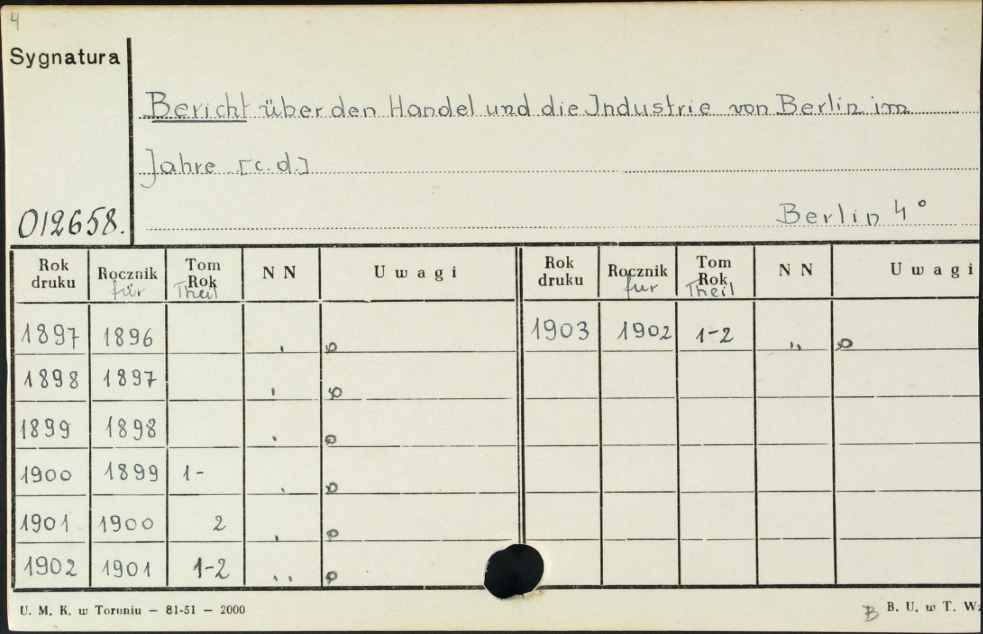 4
Sygnatura
Bericht über den Handel und die Industrie von Berlin im
Jahre [c.d.]
012658.
Berlin 4°
Rok druku Rocznik für Tom Rok Theil N N Uwagi Rok druku Rocznik für Tom Rok Theil N N Uwagi
1897 1896 1903 1902 1-2 "
1898 1897
1899 1898
1900 1899 1-
1901 1900 2
1902 1901 1-2
U. M. K. w Toruniu — 81-51 — 2000
B B. U. w T. W